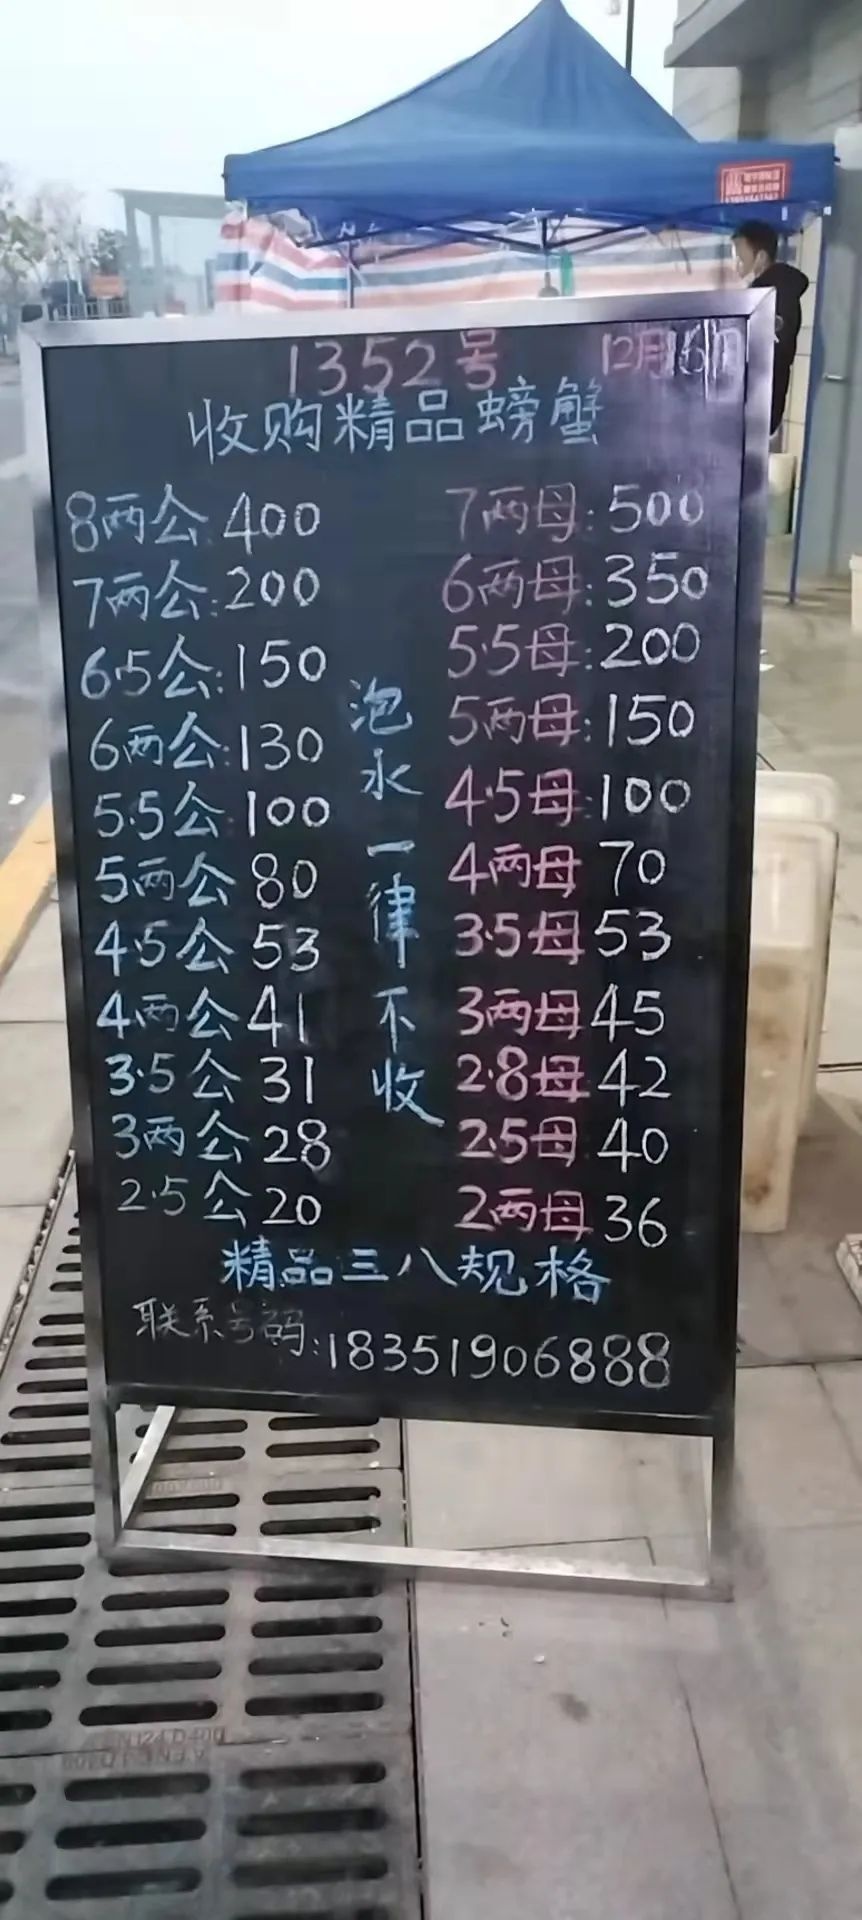 1352号 12月16日
收购精品螃蟹
8两公:400 7两母:500
7两公:200 6两母:350
6.5公:150 5.5母:200
6两公:130 5两母:150
5.5公:100 4.5母:100
5两公 80 4两母 70
4.5公 53 3.5母 53
4两公 41 3两母 45
3.5公 31 2.8母 42
3两公 28 2.5母 40
2.5公 20 2两母 36
泡水一律不收
精品三八规格
联系号码:18351906888